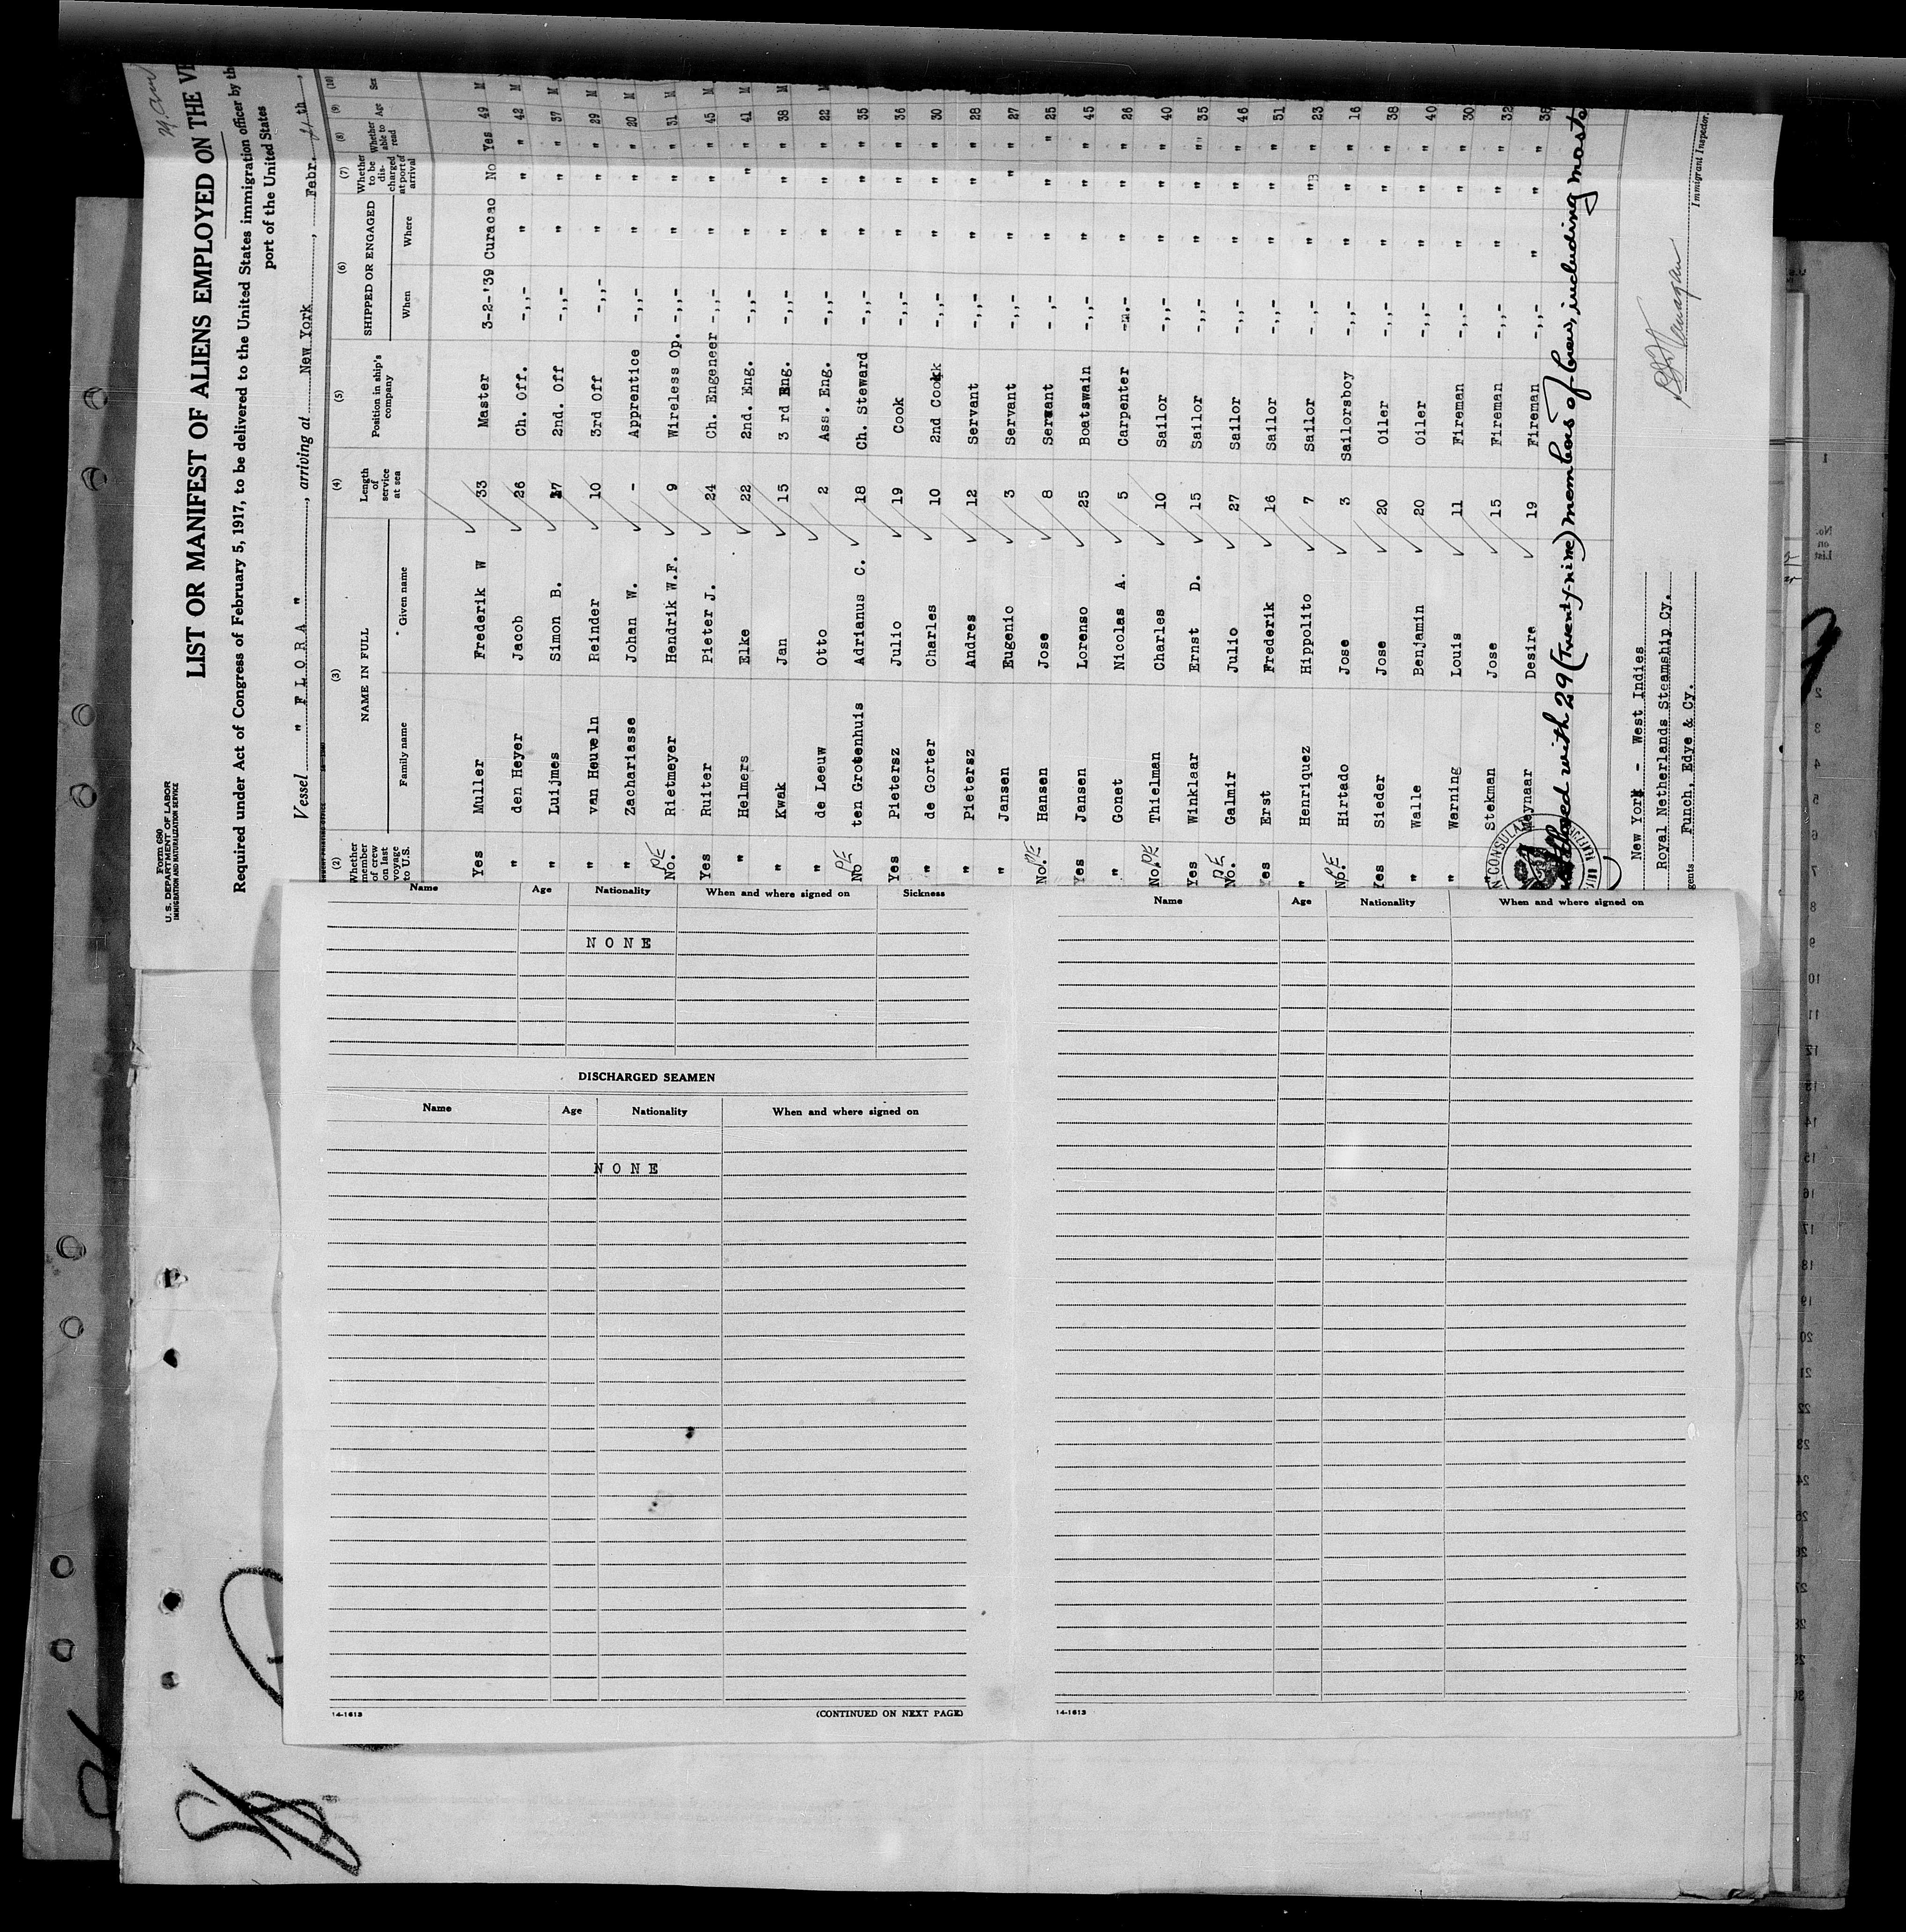 Form 680
U.S. DEPARTMENT OF LABOR
IMMIGRATION AND NATURALIZATION SERVICE
LIST OR MANIFEST OF ALIENS EMPLOYED ON THE
Required under Act of Congress of February 5, 1917, to be delivered to the United States immigration officer by
port of the United States
Vessel " F L O R A " , arriving at New York , Febr. th
(2) (3) (4) (5) (6) (7) (8) (9) (10)
Whether member of crew on last voyage to U.S. NAME IN FULL Length of service at sea Position in ship's company SHIPPED OR ENGAGED Whether to be discharged at port of arrival Whether able to read Age Sex
Family name Given name When Where
Yes Muller Frederik W 33 Master 3-2-'39 Curacao No Yes 49 M
" den Heyer Jacob 26 Ch. Off. -,,- " " " 42 M
" Luijmes Simon B. 17 2nd. Off -,,- " " " 37 M
" van Heuveln Reinder 10 3rd Off -,,- " " " 29 M
" Zachariasse Johan W. - Apprentice -,,- " " " 20 M
No. PE Rietmeyer Hendrik W.F. 9 Wireless Op. -,,- " " " 31 M
Yes Ruiter Pieter J. 24 Ch. Engeneer -,,- " " " 45 M
" Helmers Elke 22 2nd. Eng. -,,- " " " 41 M
" Kwak Jan 15 3 rd Eng. -,,- " " " 38 M
" de Leeuw Otto 2 Ass. Eng. -,,- " " " 22 M
No PE ten Grotenhuis Adrianus C. 18 Ch. Steward -,,- " " " 35
Yes Pietersz Julio 19 Cook -,,- " " " 36
" de Gorter Charles 10 2nd Cook -,,- " " " 30
" Pietersz Andres 12 Servant -,,- " " " 28
" Jansen Eugenio 3 Servant -,,- " " " 27
No. PE Hansen Jose 8 Servant - ,- " " " 25
Yes Jansen Lorenso 25 Boatswain -,,- " " " 45
" Gonet Nicolas A. 5 Carpenter -,,- " " " 26
No. PE Thielman Charles 10 Sailor -,,- " " " 40
Yes Winklaar Ernst D. 15 Sailor -,,- " " " 35
No. PE Galmir Julio 27 Sailor -,,- " " " 46
Yes Erst Frederik 16 Sailor -,,- " " " 51
" Henriquez Hippolito 7 Sailor - ,- " " " 23
No. PE Hirtado Jose 3 Sailorsboy -,,- " " " 16
Yes Sieder Jose 20 Oiler -,,- " " " 38
" Walle Benjamin 20 Oiler -,,- " " " 40
" Warning Louis 11 Fireman -,,- " " " 30
" Stekman Jose 15 Fireman -,,- " " " 32
Meynaar Desire 19 Fireman -,,- " " " 38
Closed with 29 (Twenty-nine) members of crew, including maste
New York - West Indies
Royal Netherlands Steamship Cy.
gents Funch, Edye & Cy.
Immigrant Inspector.
Name Age Nationality When and where signed on Sickness
N O N E
DISCHARGED SEAMEN
Name Age Nationality When and where signed on
N O N E
14-1613
(CONTINUED ON NEXT PAGE)
Name Age Nationality When and where signed on
14-1613
No. on List
1
2
3
4
5
6
7
8
9
10
11
12
13
14
15
16
17
18
19
20
21
22
23
24
25
26
27
28
29
30